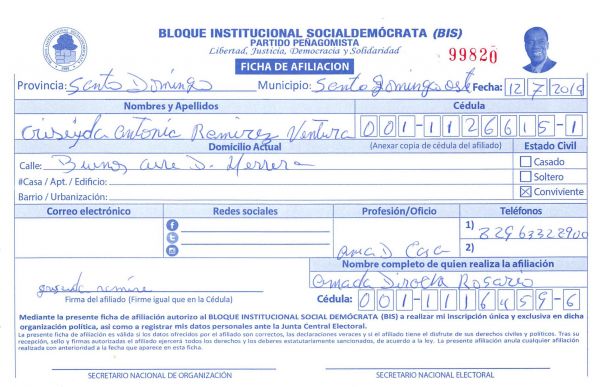 BLOQUE INSTITUCIONAL SOCIALDEMÓCRATA (BIS)
PARTIDO PEÑAGOMISTA
Libertad, Justicia, Democracia y Solidaridad
99820
FICHA DE AFILIACION
Provincia: Santo Domingo Municipio: Santo Domingo Este Fecha: 12/7/2019
Nombres y Apellidos Cédula
Criseyda Antonia Ramirez Ventura 001-1126615-1
Domicilio Actual (Anexar copia de cédula del afiliado) Estado Civil
Calle: Buenos aire D. Herrera Casado
#Casa / Apt. / Edificio: Soltero
Barrio / Urbanización: Conviviente
Correo electrónico Redes sociales Profesión/Oficio Teléfonos
1) 82963322900
ama D Casa 2)
Nombre completo de quien realiza la afiliación
Rosario
Firma del afiliado (Firme igual que en la Cédula) Cédula: 001-1116459-6
Mediante la presente ficha de afiliación autorizo al BLOQUE INSTITUCIONAL SOCIAL DEMÓCRATA (BIS) a realizar mi inscripción única y exclusiva en dicha
organización política, así como a registrar mis datos personales ante la Junta Central Electoral.
La presente ficha de afiliación es válida si los datos ofrecidos por el afiliado son correctos, las declaraciones veraces y si el afiliado tiene el disfrute de sus derechos civiles y políticos. Tras su
recepción, sello y firmas autorizadas el afiliado ejercerá todos los derechos y los deberes estatutariamente sancionados, de acuerdo a la ley. La presente afiliación anula cualquier afiliación
realizada con anterioridad a la fecha que aparece en esta ficha.
SECRETARIO NACIONAL DE ORGANIZACIÓN SECRETARIO NACIONAL ELECTORAL